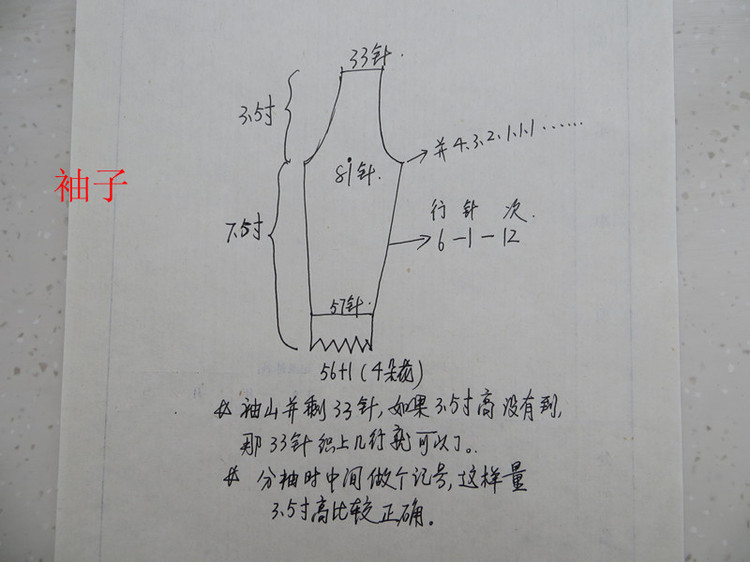 33针.
3.5寸
并4.3.2.1.1.1......
袖子
81针.
行 针 次.
7.5寸
6-1-12
57针.
56+1(4朵花)
袖山并剩33针,如果3.5寸高没有到,
那33针织上几行就可以了。
分袖时中间做个记号,这样量
3.5寸高比较正确。